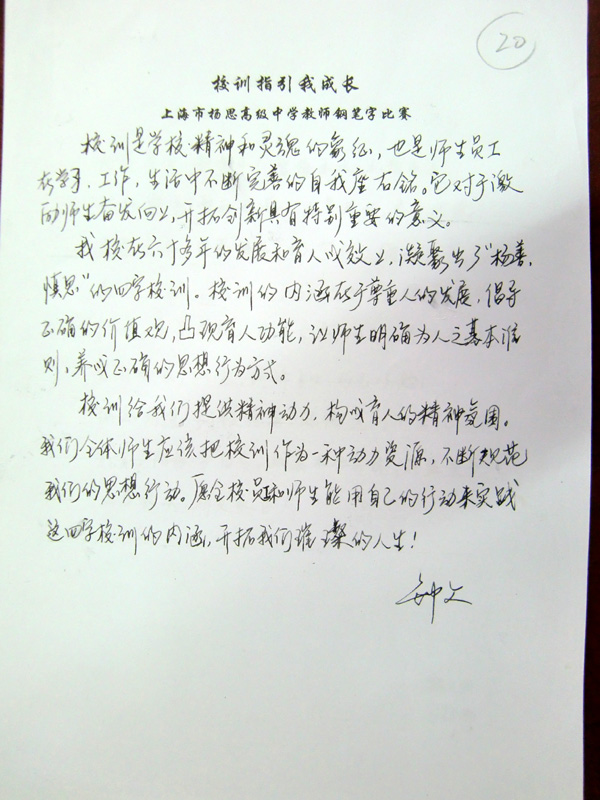 20
校训指引我成长
上海市杨思高级中学教师钢笔字比赛
校训是学校精神和灵魂的象征，也是师生员工
在学习、工作、生活中不断完善的自我座右铭。它对于激
励师生奋发向上，开拓创新具有特别重要的意义。
我校在六十多年的发展和育人成效上，凝聚出了“杨善，
慎思”的四字校训。校训的内涵在于尊重人的发展，倡导
正确的价值观，凸现育人功能，让师生明确为人之基本准
则，养成正确的思想行为方式。
校训给我们提供精神动力，构成育人的精神氛围。
我们全体师生应该把校训作为一种动力资源，不断规范
我们的思想行动。愿全校员和师生能用自己的行动来实践
这四字校训的内涵，开拓我们璀璨的人生！
钟文